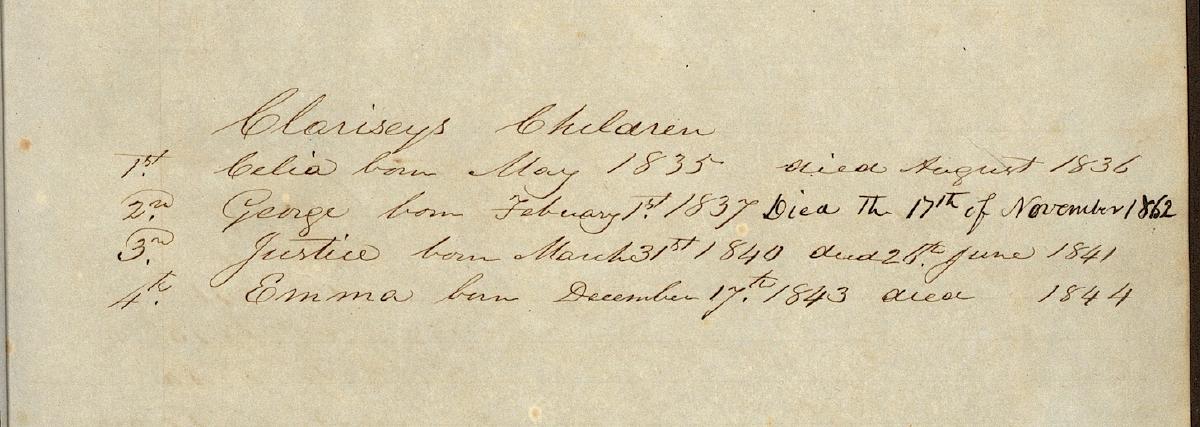 Clariseys Children
1st. Celia born May 1835 died August 1836
2n. George born February 1st. 1837 Died Th 17th of November 1862
3n. Justice born March 31st 1840 died June 1841
4th. Emma born December 17th. 1843 died 1844